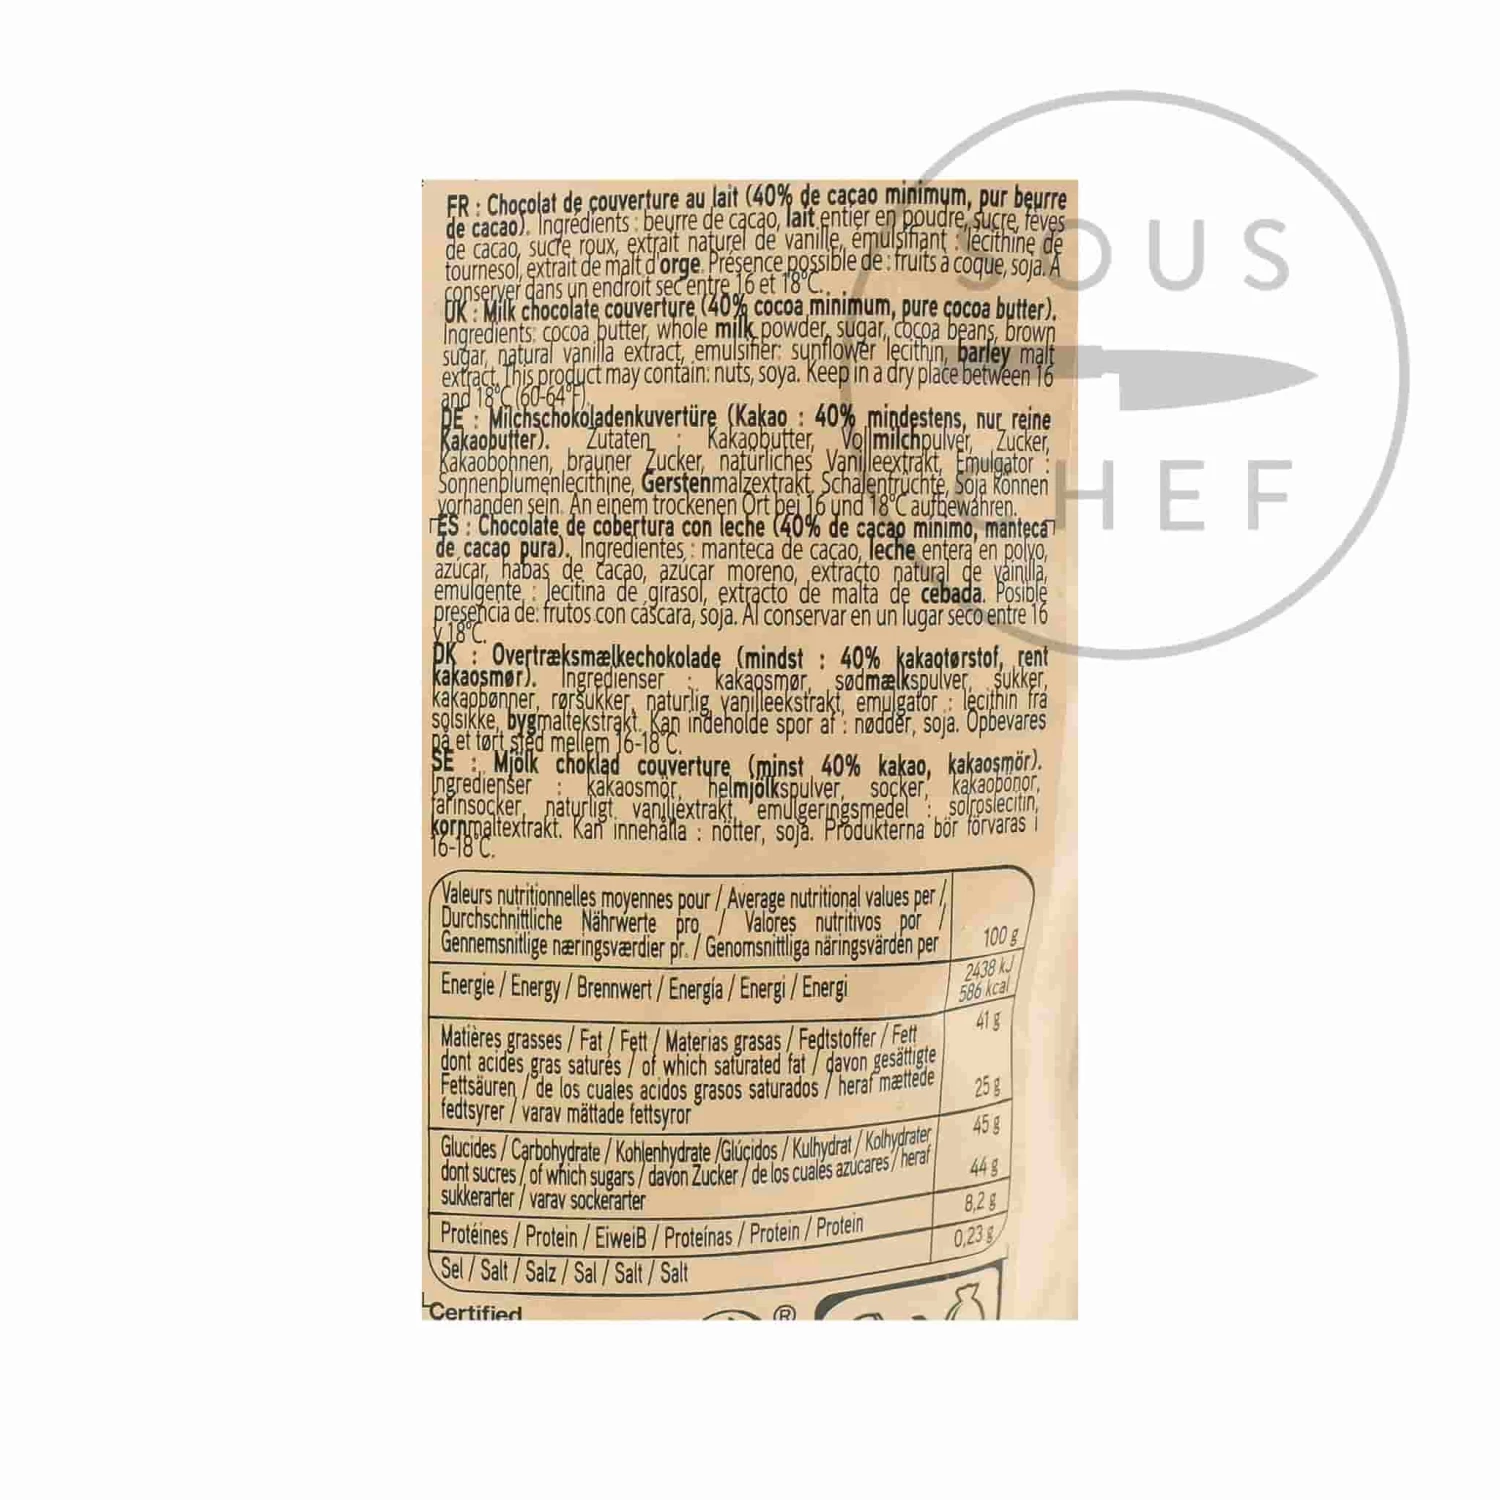 FR : Chocolat de couverture au lait (40% de cacao minimum, pur beurre
de cacao). Ingrédients : beurre de cacao, lait entier en poudre, sucre, fèves
de cacao, sucre roux, extrait naturel de vanille, émulsifiant : lécithine de
tournesol, extrait de malt d'orge. Présence possible de : fruits à coque, soja. A
conserver dans un endroit sec entre 16 et 18°C.
UK : Milk chocolate couverture (40% cocoa minimum, pure cocoa butter).
Ingredients: cocoa butter, whole milk powder, sugar, cocoa beans, brown
sugar, natural vanilla extract, emulsifier: sunflower lecithin, barley malt
extract. This product may contain: nuts, soya. Keep in a dry place between 16
and 18°C (60-64°F).
DE : Milchschokoladenkuvertüre (Kakao : 40% mindestens, nur reine
Kakaobutter). Zutaten : Kakaobutter, Vollmilchpulver, Zucker,
Kakaobohnen, brauner Zucker, natürliches Vanilleextrakt, Emulgator :
Sonnenblumenlecithine, Gerstenmalzextrakt. Schalenfrüchte, Soja können
vorhanden sein. An einem trockenen Ort bei 16 und 18°C aufbewahren.
ES : Chocolate de cobertura con leche (40% de cacao mínimo, manteca
de cacao pura). Ingredientes : manteca de cacao, leche entera en polvo,
azúcar, habas de cacao, azúcar moreno, extracto natural de vainilla,
emulgente : lecitina de girasol, extracto de malta de cebada. Posible
presencia de: frutos con cáscara, soja. Al conservar en un lugar seco entre 16
y 18°C.
DK : Overtræksmælkechokolade (mindst : 40% kakaotørstof, rent
kakaosmør). Ingredienser : kakaosmør, sødmælkspulver, sukker,
kakaobønner, rørsukker, naturlig vanilleekstrakt, emulgator : lecithin fra
solsikke, bygmaltekstrakt. Kan indeholde spor af : nødder, soja. Opbevares
på et tørt sted mellem 16-18°C.
SE : Mjölk choklad couverture (minst 40% kakao, kakaosmör).
Ingredienser : kakaosmör, helmjölkspulver, socker, kakaobönor,
farinsocker, naturligt vaniljextrakt, emulgeringsmedel : solroslecitin,
kornmaltextrakt. Kan innehålla : nötter, soja. Produkterna bör förvaras i
16-18°C.
Valeurs nutritionnelles moyennes pour / Average nutritional values per /
Durchschnittliche Nährwerte pro / Valores nutritivos por /
Gennemsnitlige næringsværdier pr. / Genomsnittliga näringsvärden per 100 g
Energie / Energy / Brennwert / Energía / Energi / Energi 2438 kJ
586 kcal
Matières grasses / Fat / Fett / Materias grasas / Fedtstoffer / Fett 41 g
dont acides gras saturés / of which saturated fat / davon gesättigte
Fettsäuren / de los cuales acidos grasos saturados / heraf mættede 25 g
fedtsyrer / varav mättade fettsyror
Glucides / Carbohydrate / Kohlenhydrate /Glúcidos / Kulhydrat / Kolhydrater 45 g
dont sucres / of which sugars / davon Zucker / de los cuales azucares / heraf 44 g
sukkerarter / varav sockerarter
Protéines / Protein / Eiweiß / Proteínas / Protein / Protein 8,2 g
Sel / Salt / Salz / Sal / Salt / Salt 0,23 g
Certified
®
SOUS
CHEF